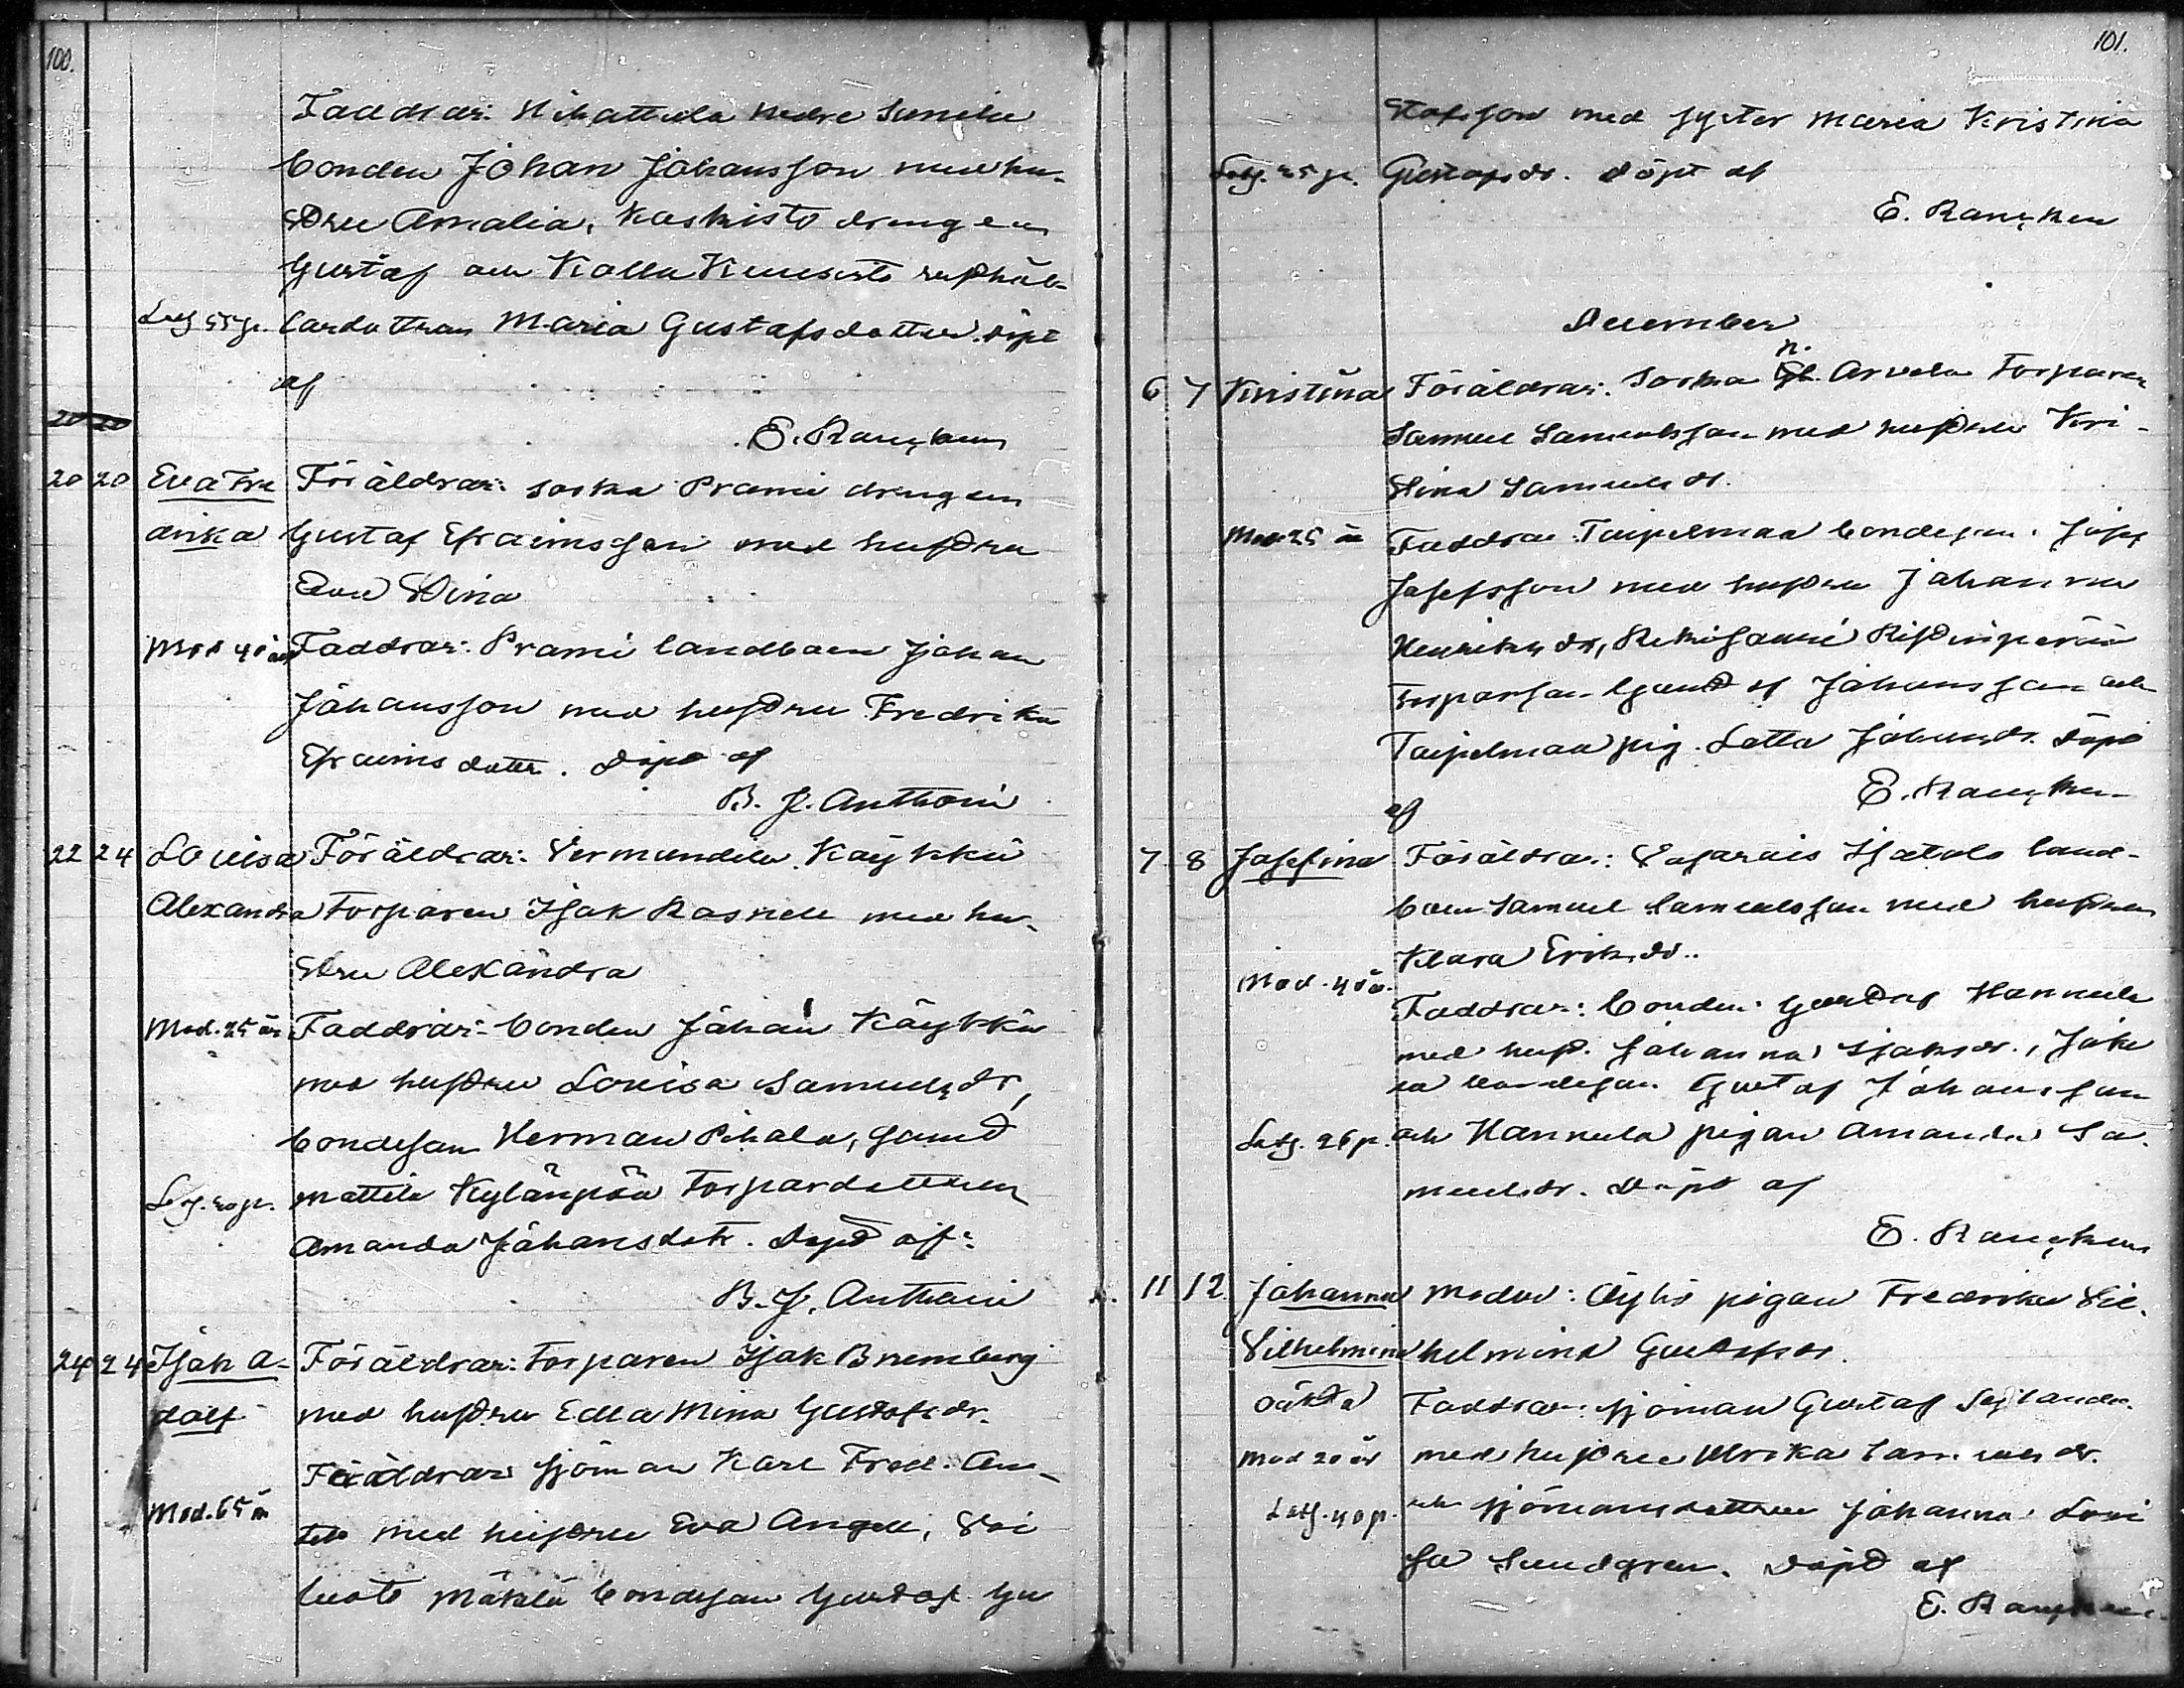 100.
Faddrar: Nihattula nedre Simila
bonden Johan Johansson med hu-
stru Amalia, Kaskisto drengen
Gustaf och Kalla Kuusisto rusthål-
Latg 55 p. lardottran Maria Gustafsdotter. Döpt
af
20 20
E. Rancken
20 20 Eva Fre Föräldrar: Sorka Prami drengen
drika Gustaf Efraimsson med hustru
Eva Stina
Mod 40 år Faddrar: Prami landboen Johan
Johansson med hustru Fredrika
Efraims dotter. Döpt af
B. J. Anthoni
22 24 Lovisa Föräldrar: Vermundila Käykkä
Alexandra Torparen Isak Rasnell med hu-
stru Alexandra
Mod. 25 år Faddrar: bonden Johan Käykkä
med hustru Lovisa Samuelsdr,
bondeson Herman Pihala, samt
Latg. 20 p. Mattila Kylänpää Torpardottren
Amanda Johansdotr. Döpt af:
B. J. Anthoni
24 24 Isak A- Föräldrar: Torparen Isak Bremberg
dolf med hustru Edla Mina Gustafsdr.
Föräldrar sjöman Karl Fred. An-
Mod. 65 år tell med hustru Eva Angell, Voi
luoto Mäkilä bondeson Gustaf Gu
101.
stafsson med syster Maria Kristina
Latg. 25 p. Gustafsdr. Döpt af
E. Rancken
December
n.
6 7 Kristina Föräldrar: Sorka Arvela Torparen
Samuel Samuelsson med hustru Kri-
stina Samuelsdr.
Mod. 25 år Faddrar Taipelmaa bondeson Josef
Josefsson med hustru Johanna
Henriksdr,
Torparson Gustaf Johansson och
Taipelmaa pig. Lotta Johansdr. Döpt
af E. Rancken
7 8 Josefina Föräldrar: Vasarais Isotalo land-
boen Samuel Samuelsson med hustru
Klara Eriksdr..
Mod. 40 år.
Faddrar: bonden Gustaf Hannula
med hust. Johanna Isaksdr.,
bondeson Gustaf Johansson
Latg. 26 p. och Hannula pigan Amanda Sa
muelsdr. Döpt af
E. Rancken
11 12 Johanna Moder: Äyhö pigan Fredrika Vil-
Vilhelmina helmina Gustafsdr.
oäkta Faddrar: sjöman Gustaf
Mod 20 år med hustru Ulrika Samuelsdr.
Latg. 40 p. och sjömansdottren Johanna Lovi
sa Sundgren. Döpt af
E. Rancken